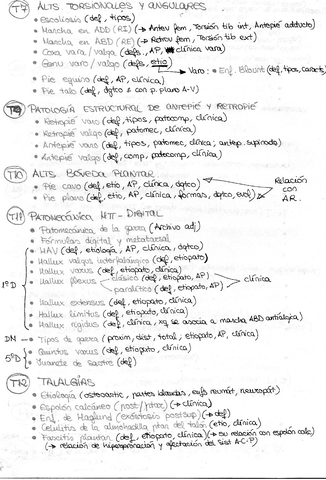 T7 ALTS TORSIONALES Y ANGULARES
• Escoliosis (def, tipos)
• Marcha en ADD (RI) (→ Antev fem, Torsión tib int, Antepié adducto)
• Marcha en ABD (RE) (→ Retrov fem, Torsión tib ext)
• Coxa vara / valga (defs, AP, clínica vara)
• Genu varo / valgo (defs, etio)
→ Varo: • Enf. Blount (def, tpos, caract)
• Pie equino (def, AP, clínica)
• Pie talo (def, dgtco con p. plano A-V)
PATOLOGÍA ESTRUCTURAL DE ANTEPIÉ Y RETROPIÉ
• Retropié varo (def, tipos, patocomp, clínica)
• Retropié valgo (def, patomec, clínica)
• Antepié varo (def, tipos, patomec, clínica; antep. supinado)
• Antepié valgo (def, comp, patocomp, clínica)
T10 ALTS BÓVEDA PLANTAR
• Pie cavo (def, etio, AP, clínica, dgtco)
• Pie plano (def, etio, AP, clínica, formas, dgtco, evol)
Relación con A.R.
T11 PATOMECÁNICA MT - DIGITAL
• Patomecánica de la garra (Archivo adj)
• Fórmulas digital y metatarsal
• HAV (def, etiología, AP, clínica, dgtco)
• Hallux valgus interfalángico (def, etiopato)
• Hallux varus (def, etiopato, clínica)
• Hallux flexus clásico (def, etiopato, AP)
paralítico (def, etiopato, AP) > clínica
1ºD
• Hallux extensus (def, etiopato, clínica)
• Hallux limitus (def, etiopato, clínica)
• Hallux rigidus (def, clínica, xq se asocia a marcha ABD antiálgica)
DM → • Tipos de garra (proxim, dist, total, etiopato, AP, clínica)
5ºD • Quintus varus (def, etiopato, clínica)
• Juanete de sastre (def)
T12 TALALGIAS
• Etiología (osteoartic, partes blandas, enfs reumát, neuropát)
• Espolón calcáneo (post/plantar) (→ clínica)
• Enf. de Haglund (exóstosis postsup) (→ def)
• Celulitis de la almohadilla plan del talón (etio, clínica)
• Fascitis plantar (def, etiopato, clínica) (→ su relación con espolón calc)
(→ relación de hiperpronación y afectación del sist A-C-P)